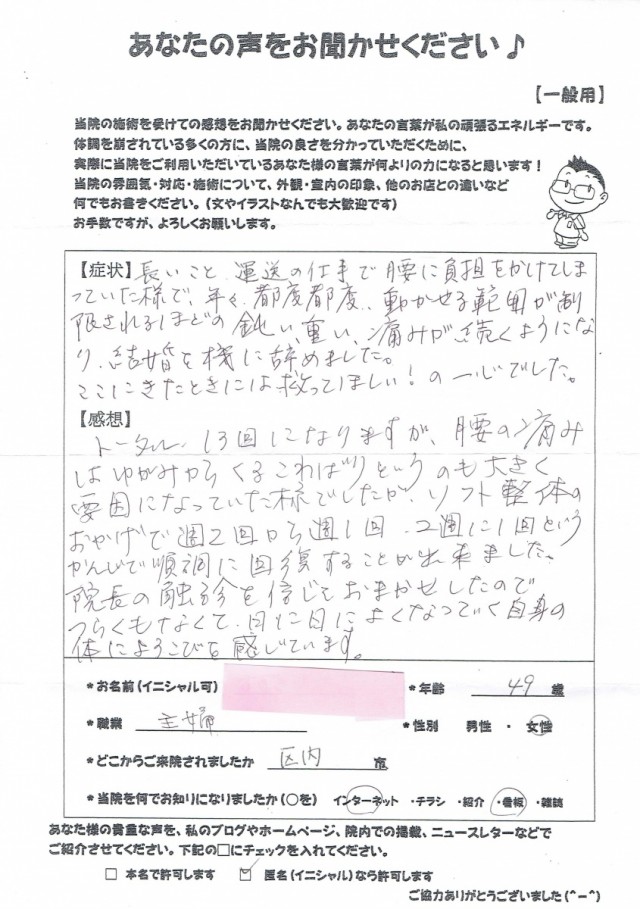 あなたの声をお聞かせください♪
【一般用】
当院の施術を受けての感想をお聞かせください。あなたの言葉が私の頑張るエネルギーです。
体調を崩されている多くの方に、当院の良さを分かっていただくために、
実際に当院をご利用いただいているあなた様の言葉が何よりの力になると思います！
当院の雰囲気・対応・施術について、外観・室内の印象、他のお店との違いなど
何でもお書きください。（文やイラストなんでも大歓迎です）
お手数ですが、よろしくお願いします。
【症状】長いこと、運送の仕事で腰に負担をかけてしま
っていた様で、年々、都度都度、動かせる範囲が制
限されるほどの鈍い、重い、痛みが続くようにな
り、結婚を機に辞めました。
ここにきたときには救ってほしい！の一心でした。
【感想】
トータル 13回になりますが、腰の痛み
はゆがみからくるこわばりというのも大きく
要因になっていた様でしたが、ソフト整体の
おかげで週2回から週1回、2週に1回という
かんじで順調に回復することが出来ました。
院長の触診を信じておまかせしたので
つらくもなくて、日に日によくなっていく自身の
体によろこびを感じています。
*お名前（イニシャル可） *年齢 49 歳
*職業 主婦 *性別 男性 ・ 女性
*どこからご来院されましたか 区内 市
*当院を何でお知りになりましたか（○を） インターネット ・チラシ ・紹介 ・看板 ・雑誌
あなた様の貴重な声を、私のブログやホームページ、院内での掲載、ニュースレターなどで
ご紹介させてください。下記の□にチェックを入れてください。
□ 本名で許可します ☑ 匿名（イニシャル）なら許可します
ご協力ありがとうございました（^－^）